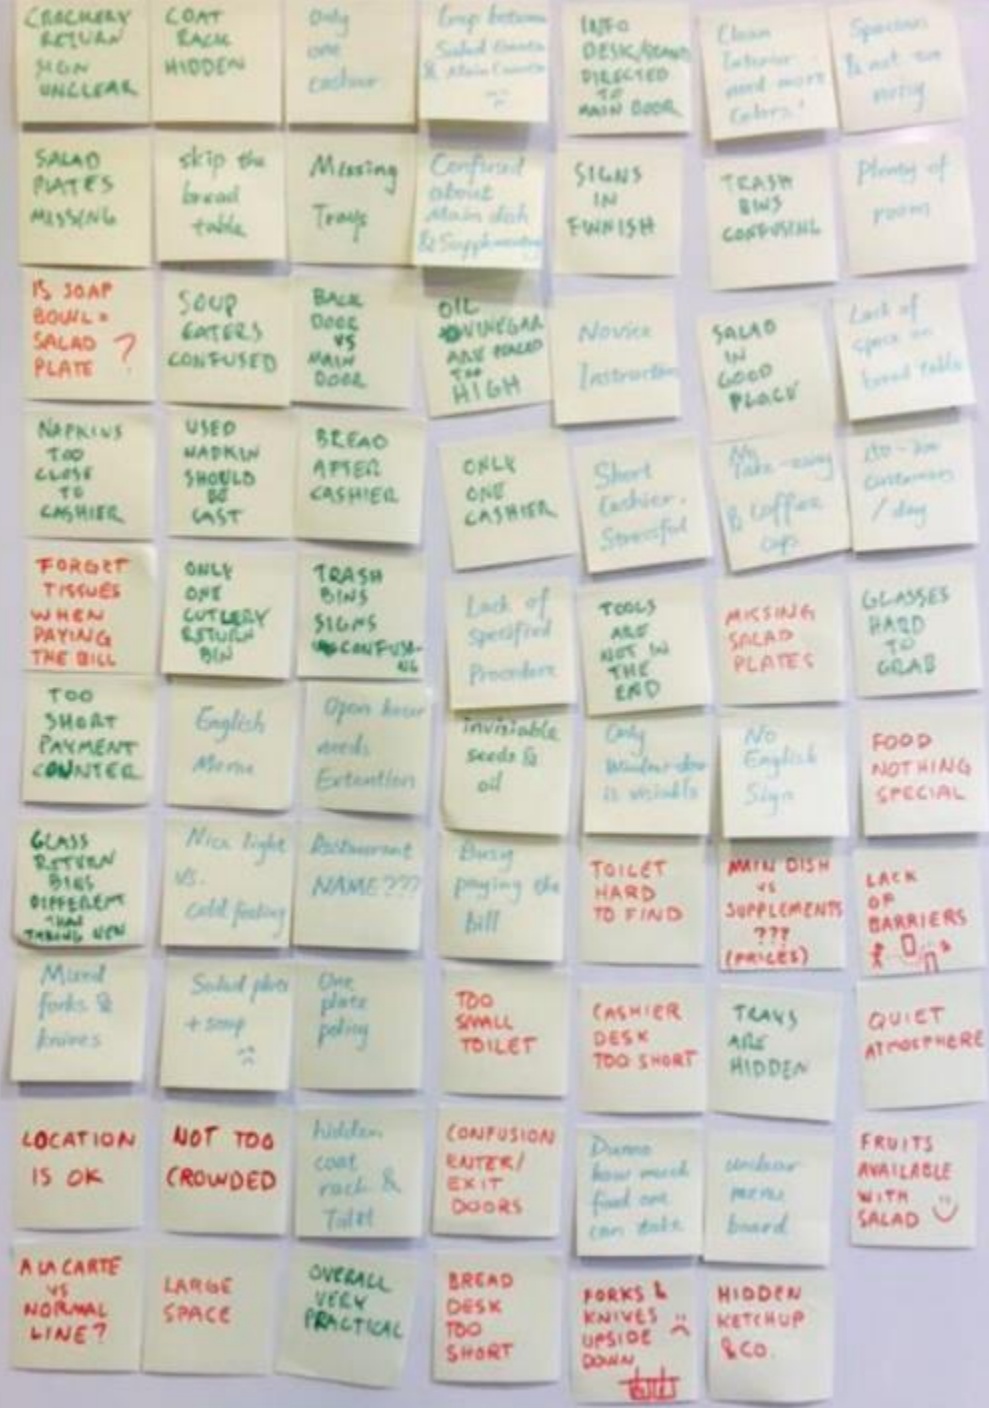 CROCKERY
RETURN
SIGN
UNCLEAR
COAT
RACK
HIDDEN
Only
one
cashier
Gap between
Salad
& Main Course
INFO
DESK/
DIRECTED
TO
MAIN DOOR
Clean
Interior
need more
Colors!
Spacious
& not too
noisy
SALAD
PLATES
MISSING
skip the
bread
table
Missing
Trays
Confused
about
Main dish
& Supplementary
SIGNS
IN
FINNISH
TRASH
BINS
CONFUSING
Plenty of
room
IS SOAP
BOWL =
SALAD
PLATE ?
SOUP
EATERS
CONFUSED
BACK
DOOR
VS
MAIN
DOOR
OIL
VINEGAR
ARE PLACED
TOO
HIGH
Novice
Instruction
SALAD
IN
GOOD
PLACE
Lack of
space on
bread table
NAPKINS
TOO
CLOSE
TO
CASHIER
USED
NAPKIN
SHOULD
BE
LAST
BREAD
AFTER
CASHIER
ONLY
ONE
CASHIER
Short
Cashier.
Stressful
No
Take-away
& Coffee
cup
customers
/ day
FORGET
TISSUES
WHEN
PAYING
THE BILL
ONLY
ONE
CUTLERY
RETURN
BIN
TRASH
BINS
SIGNS
CONFUSI-
NG
Lack of
specified
Procedure
TOOLS
ARE
NOT IN
THE
END
MISSING
SALAD
PLATES
GLASSES
HARD
TO
GRAB
TOO
SHORT
PAYMENT
COUNTER
English
Menu
Open hour
needs
Extention
invisiable
seeds &
oil
Only
is visiable
No
English
Sign
FOOD
NOTHING
SPECIAL
GLASS
RETURN
BINS
DIFFERENT
THAN
TAKING NEW
Nice light
vs.
Cold feeling
Restaurant
NAME???
Busy
paying the
bill
TOILET
HARD
TO FIND
MAIN DISH
vs
SUPPLEMENTS
???
(PRICES)
LACK
OF
BARRIERS
Mixed
forks &
knives
Salad plate
+ soup
One
plate
policy
TOO
SMALL
TOILET
CASHIER
DESK
TOO SHORT
TRAYS
ARE
HIDDEN
QUIET
ATMOSPHERE
LOCATION
IS OK
NOT TOO
CROWDED
hidden
coat
rack &
Toilet
CONFUSION
ENTER/
EXIT
DOORS
Dunno
how much
food one
can take
unclear
menu
board
FRUITS
AVAILABLE
WITH
SALAD
A LA CARTE
VS
NORMAL
LINE?
LARGE
SPACE
OVERALL
VERY
PRACTICAL
BREAD
DESK
TOO
SHORT
FORKS &
KNIVES
UPSIDE
DOWN
HIDDEN
KETCHUP
& CO.